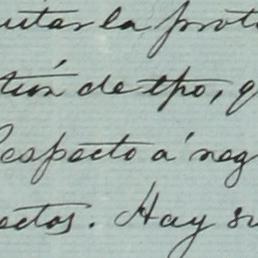 uitar la prote
tión de tpo, q
Respecto a' neg
ectos. Hay su